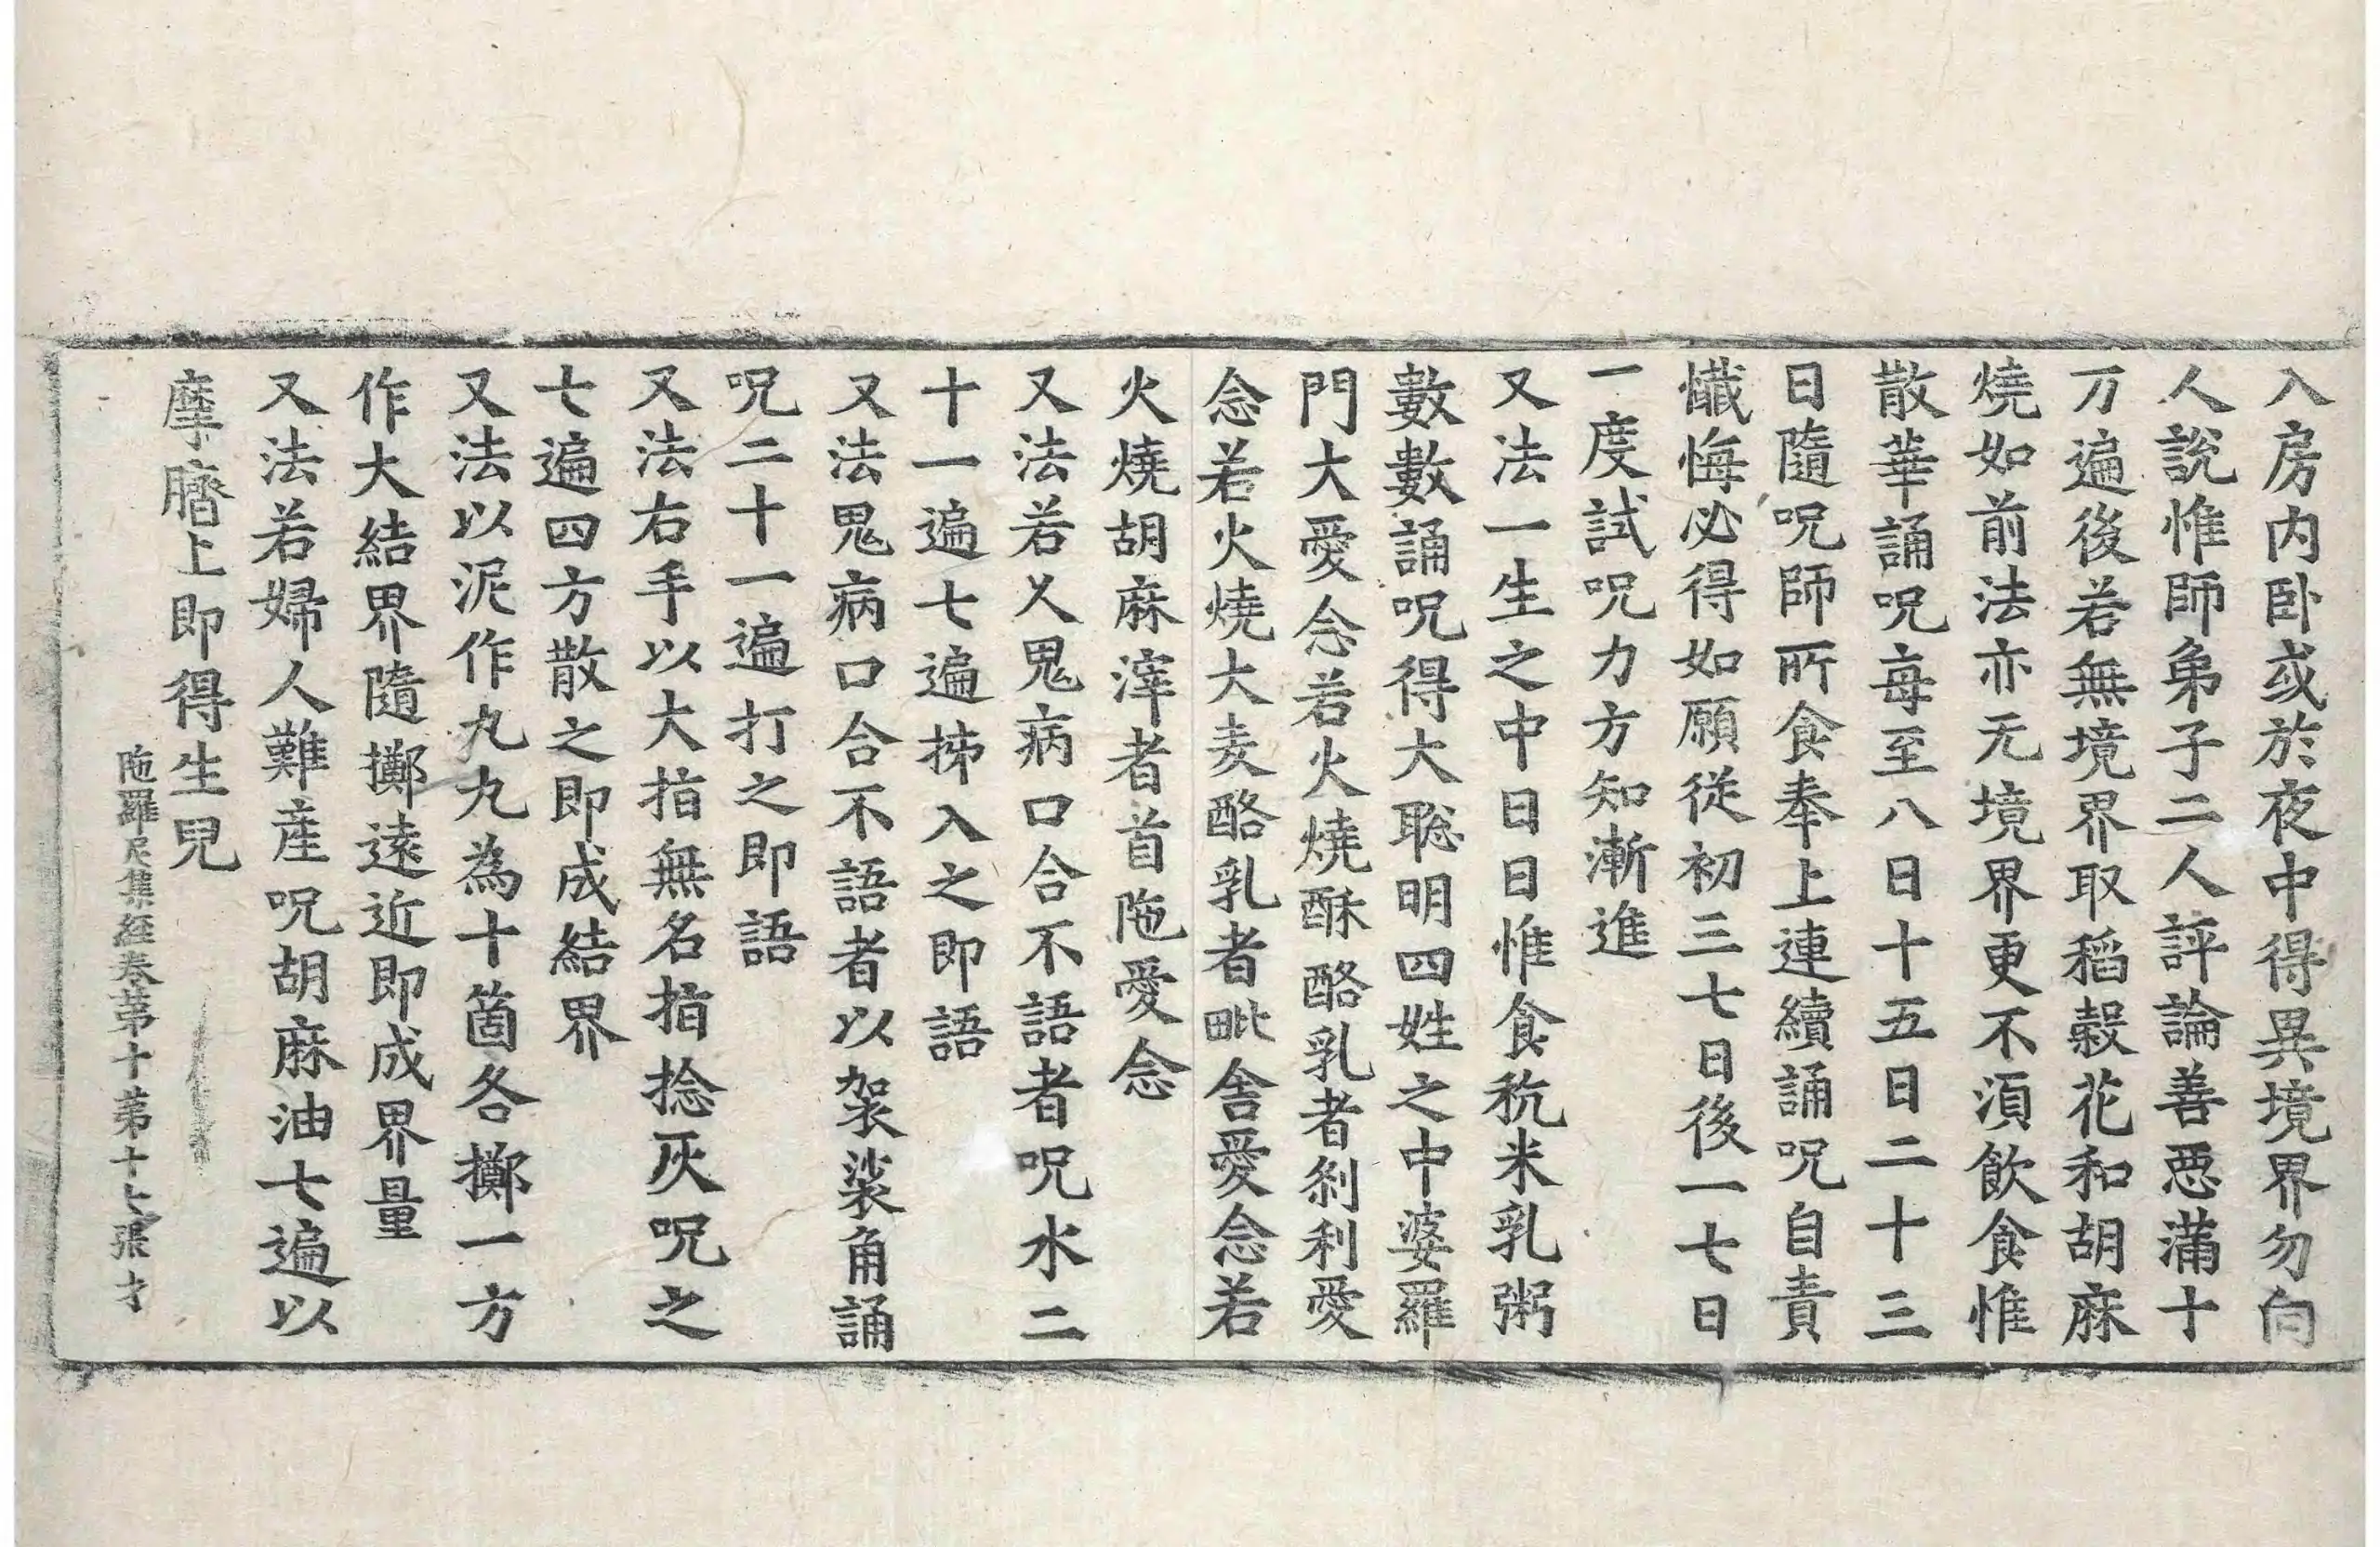 入房内卧或於夜中得異境界勿向
人說惟師弟子二人評論善惡滿十
万遍後若無境界取稻穀花和胡麻
燒如前法亦无境界更不湏飲食惟
散華誦呪每至八日十五日二十三
日隨呪師所食奉上連續誦呪自責
懺悔必得如願從初三七日後一七日
一度試呪力方知漸進
又法一生之中日日惟食秔米乳粥
數數誦呪得大聡明四姓之中婆羅
門大愛念若火燒酥酪乳者刹利愛
念若火燒大麦酪乳者毗舍愛念若
火燒胡麻滓者首陁愛念
又法若乂鬼病口合不語者呪水二
十一遍七遍拂入之即語
又法鬼病口合不語者以袈裟角誦
呪二十一遍打之即語
又法右手以大指無名指捻灰呪之
七遍四方散之即成結界
又法以泥作丸丸為十箇各擲一方
作大結界隨擲遠近即成界量
又法若婦人難産呪胡麻油七遍以
摩臍上即得生兒
陁羅尼集経卷苐十苐十七張才